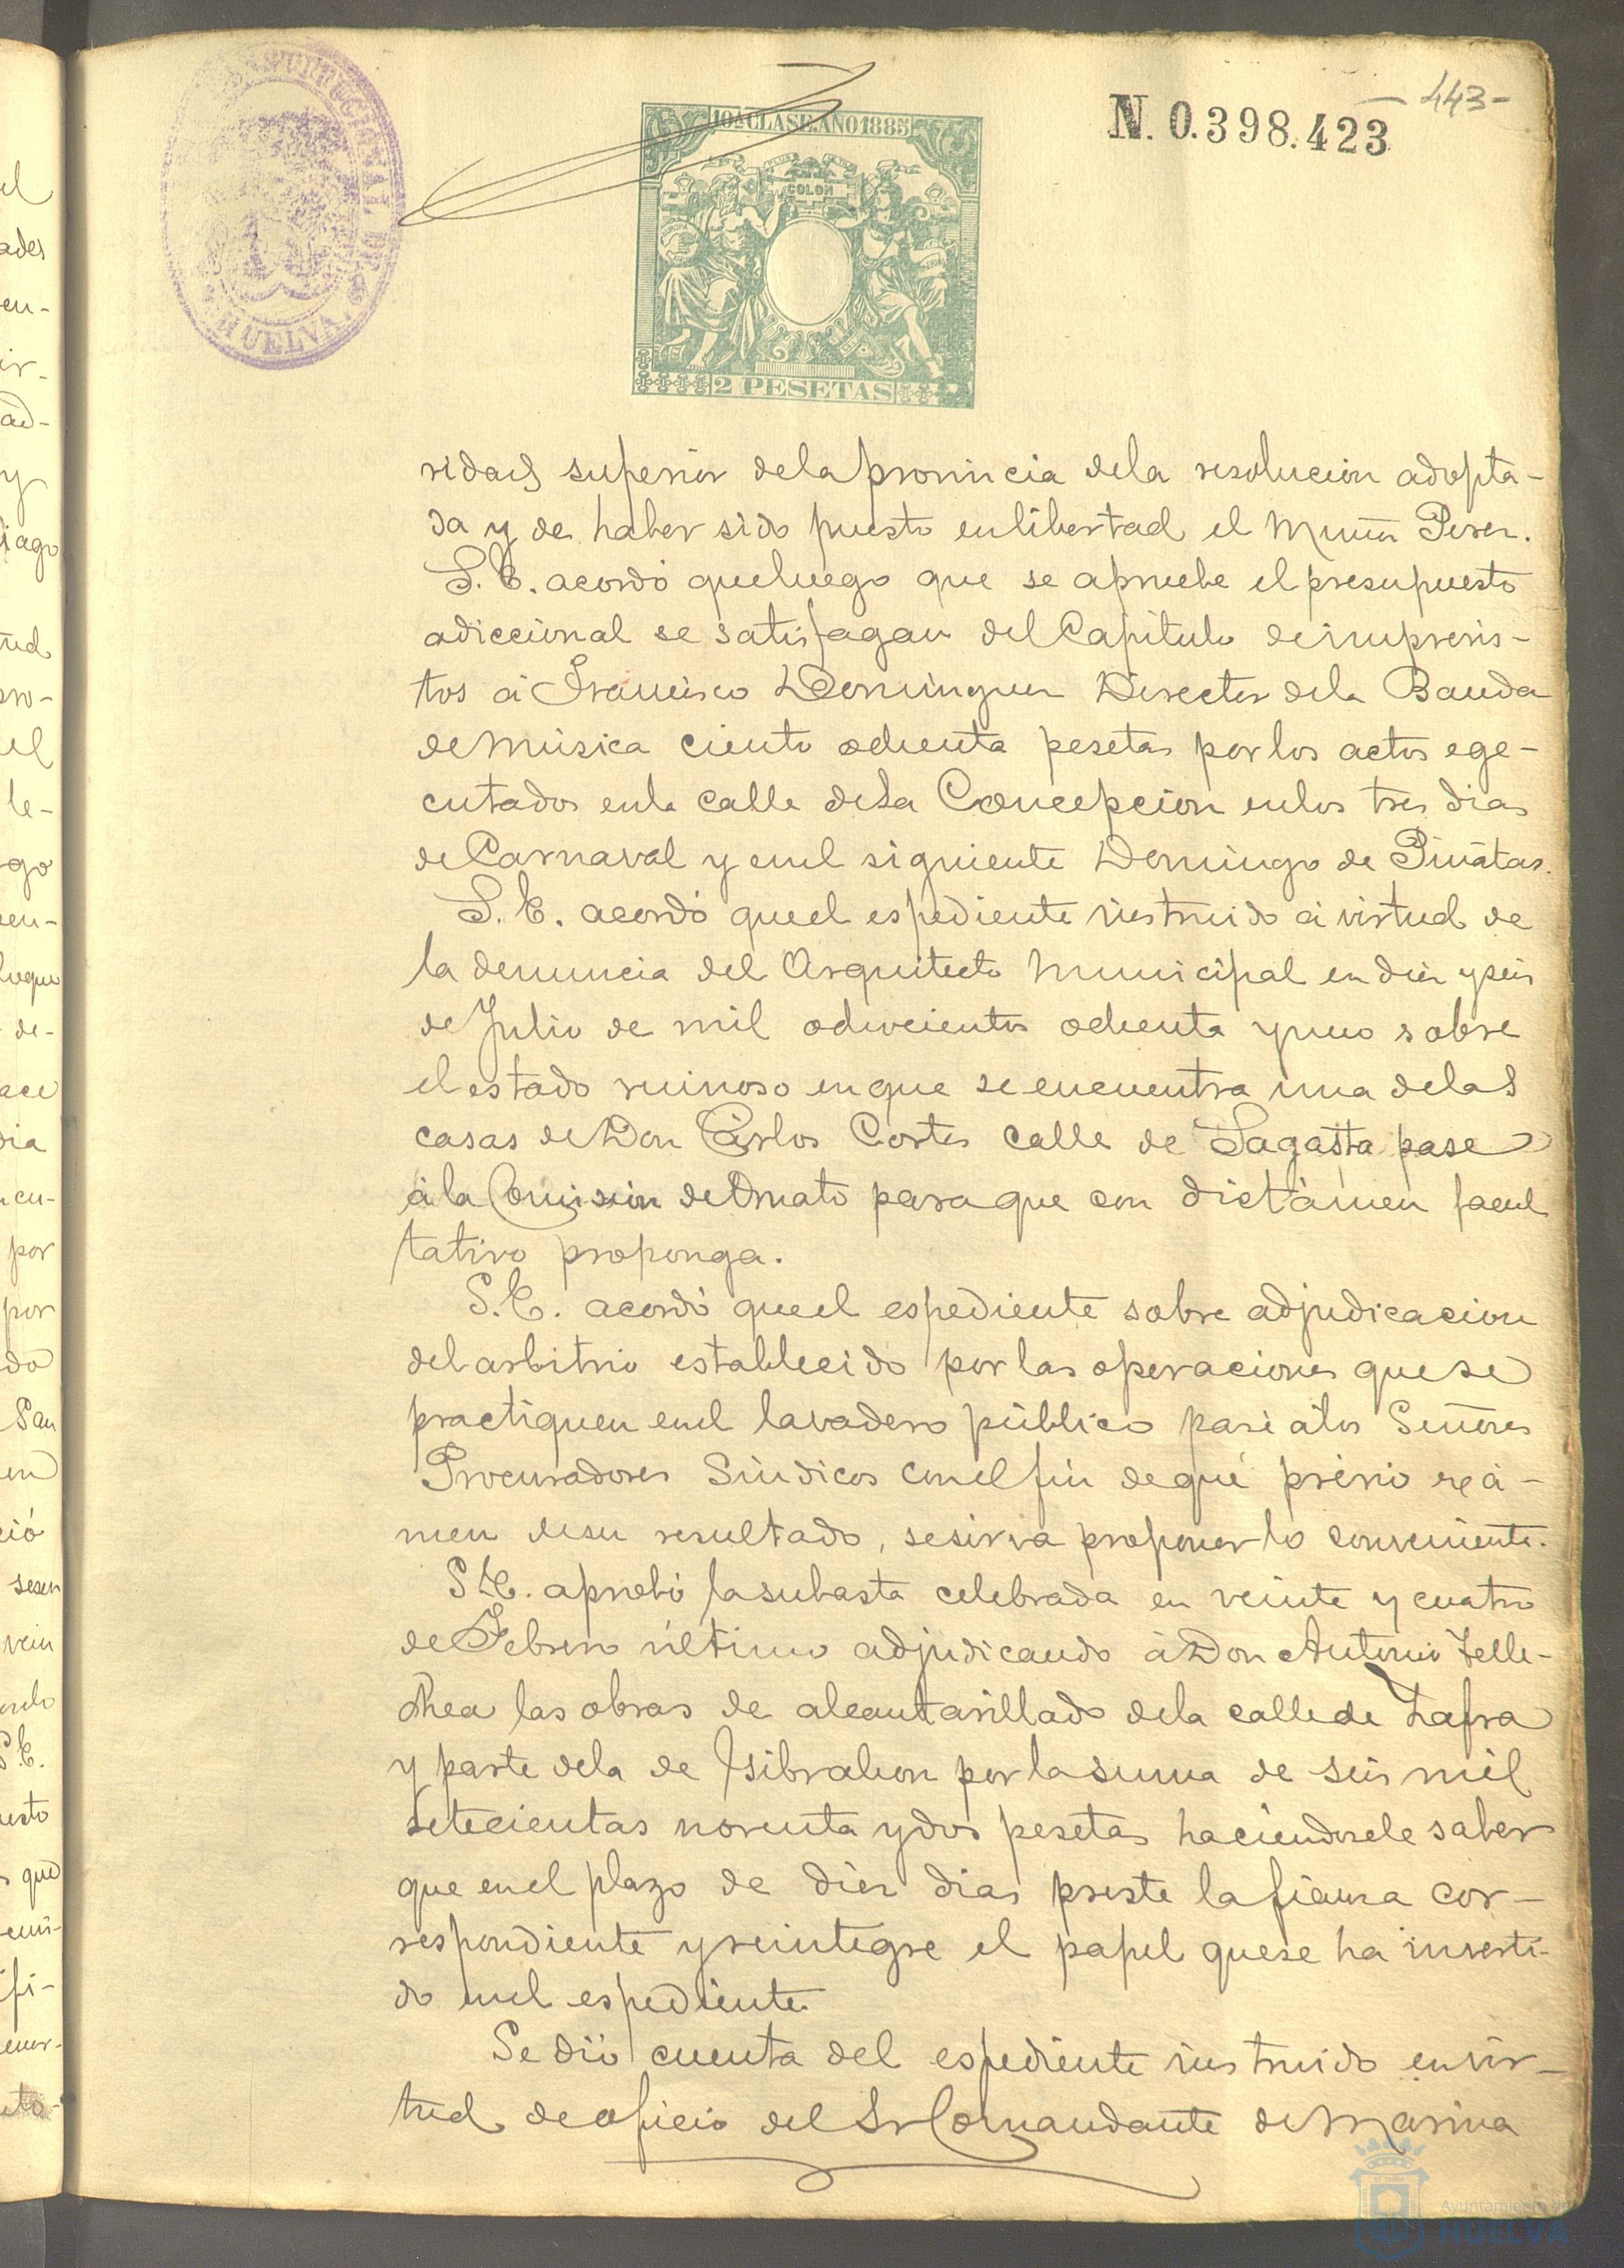 443-
N. 0.398.423
10ª CLASE. AÑO 1885
COLON
2 PESETAS
CONSTITUCIONAL DE
HUELVA
ridad superior dela provincia dela resolucion adopta-
da y de haber sido puesto enlibertad el Muñoz Perez.
S. E. acordó queluego que se apruebe el presupuesto
adiccional se satisfagan del Capitulo deimprevis-
tos á Francisco Dominguez Director dela Banda
deMúsica ciento ochenta pesetas porlos actos ege-
cutados enla calle dela Concepcion enlos tres dias
deCarnaval y enel siguiente Domingo de Piñatas.
S. E. acordó queel espediente instruido á virtud de
la denuncia del Arquitecto Municipal en diez yseis
deJulio de mil ochocientos ochenta yuno sobre
el estado ruinoso enque se encuentra una delas
casas deDon Cárlos Cortes calle de Sagasta pase
á la Comision deOrnato paraque con dictámen facul
tativo proponga.
S. E. acordó queel espediente sobre adjudicacion
delarbitrio establecido porlas operaciones quese
practiquen enel lavadero público pase álos Señores
Procuradores Sindicos conelfin dequé prévio exá-
men desu resultado, sesirva proponerlo conveniente.
S. E. aprobó lasubasta celebrada en veinte y cuatro
deFebrero último adjudicando áDon Antonio Telle-
chea las obras de alcantarillado dela callede Zafra
y parte dela de Gibraleon porlasuma de seis mil
setecientas noventa ydos pesetas haciendosele saber
que enel plazo de diez dias preste lafianza cor-
respondiente yreintegre el papel quese ha inverti-
do enel espediente.
Se dió cuenta del espediente instruido envir-
tud deoficio del Sr Comandante deMarina
Ayuntamiento de
HUELVA